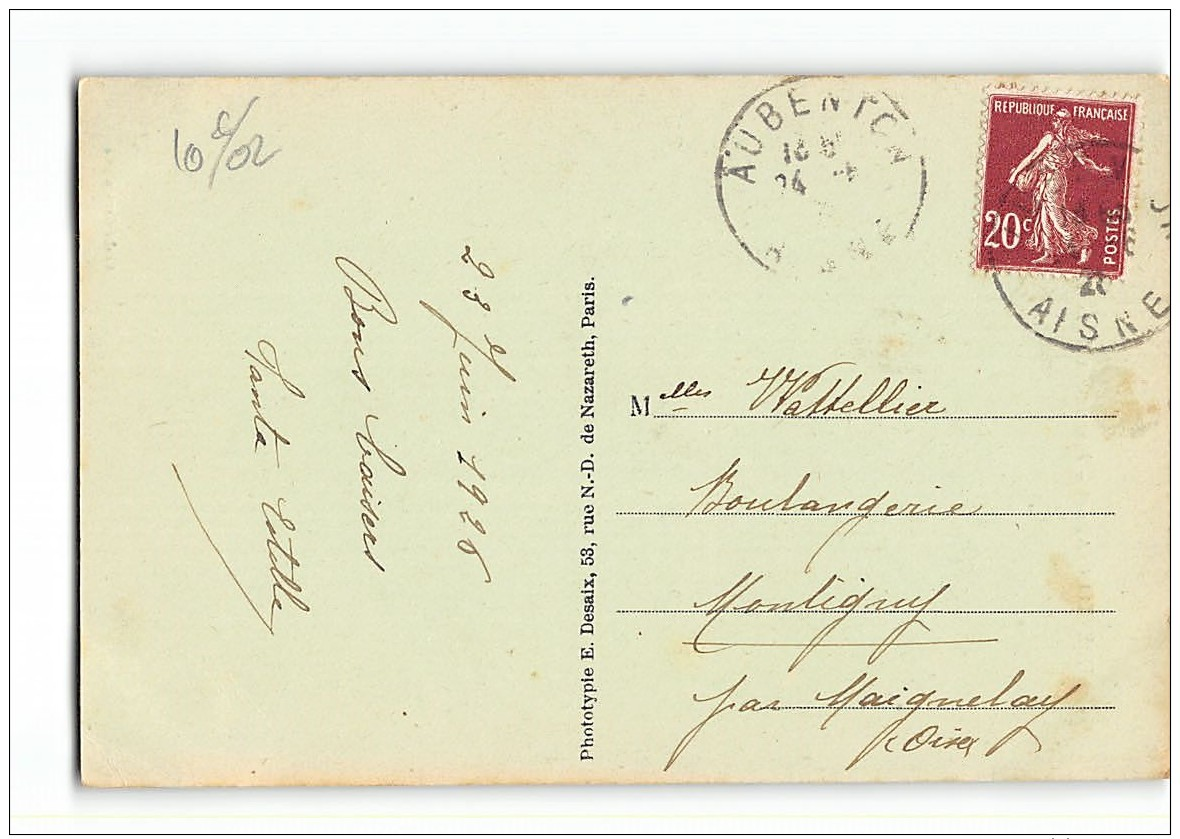 6€/02
AUBENTON
24
REPUBLIQUE FRANÇAISE
20c
POSTES
AISNE
23 Juin 1926
Bons baisers
Tanta Estelle
Phototypie E. Desaix, 53, rue N.-D. de Nazareth, Paris.
Melles Wattellier
Boulangerie
Montigny
par Maignelay
(Oise)